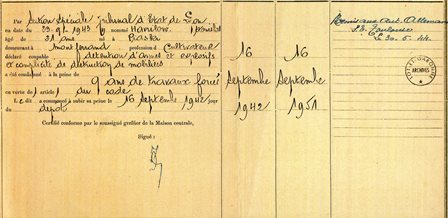 Par Section Spéciale Tribunal d'Etat de Lyon
en date du 23.9.1943 le nommé Hamelin
âgé de 31 ans né à Bastia
demeurant à Montferrand profession Cultivateur
déclaré coupable détention d'armes et explosifs
et complicité de destruction de mobiliers
a été condamné à la peine de
9 ans de travaux forcés
en vertu de l'article du code
Ledit a commencé à subir sa peine le 16 Septembre 1942 jour
du depot
Certifié conforme par le soussigné greffier de la Maison centrale,
Signé :
16
Septembre
1942
16
Septembre
1951
Remis aux Aut. Allemandes
S.D. Toulouse
le 30.5.44
ARCHIVES